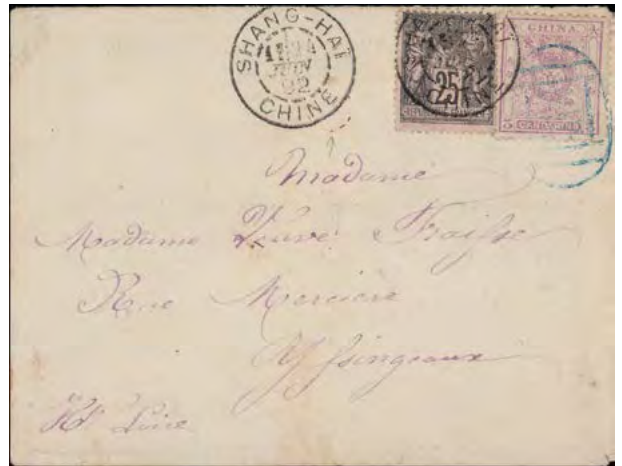 SHANG-HAI
JUIN
92
CHINE
25
CHINA
CANDARINS
Madame
Madame Veuve Fraisse
Rue Mercière
Yssingeaux
Hte Loire